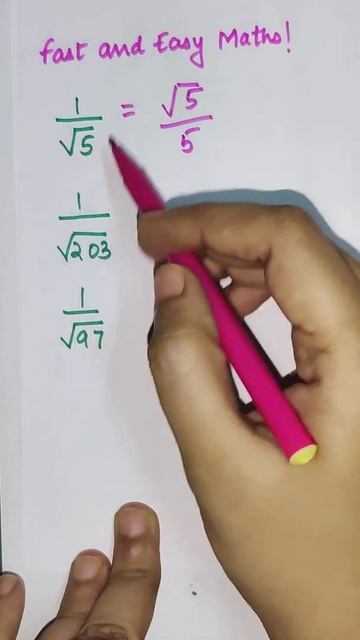 Fast and Easy Maths!
1/√5 = √5/5
1/√203
1/√97